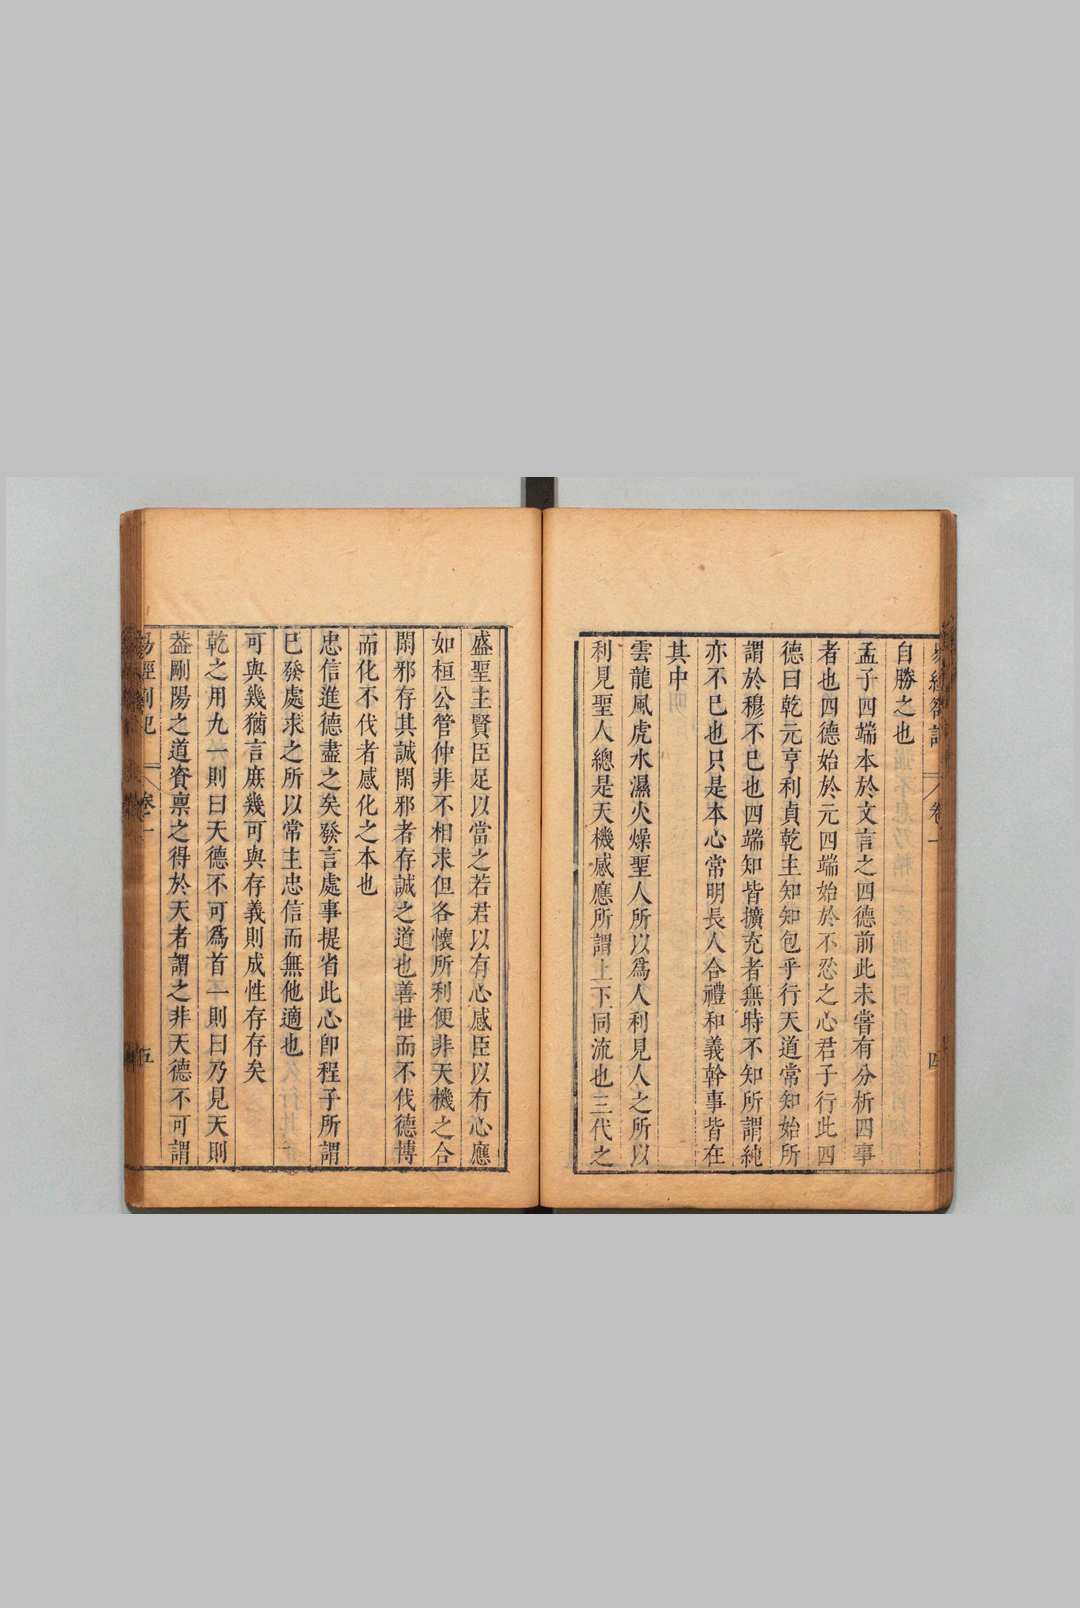 自勝之也
孟子四端本於文言之四德前此未嘗有分析四事
者也四德始於元四端始於不忍之心君子行此四
德曰乾元亨利貞乾主知知包乎行天道常知始所
謂於穆不已也四端知皆擴充者無時不知所謂純
亦不已也只是本心常明長人合禮和義幹事皆在
其中
雲龍風虎水濕火燥聖人所以爲人利見人之所以
利見聖人總是天機感應所謂上下同流也三代之
盛聖主賢臣足以當之若君以有心感臣以有心應
如桓公管仲非不相求但各懷所利便非天機之合
閑邪存其誠閑邪者存誠之道也善世而不伐德博
而化不伐者感化之本也
忠信進德盡之矣發言處事提省此心卽程子所謂
已發處求之所以常主忠信而無他適也
可與幾猶言庶幾可與存義則成性存存矣
乾之用九一則曰天德不可爲首一則曰乃見天則
葢剛陽之道資稟之得於天者謂之非天德不可謂
易經劄記 卷一 五